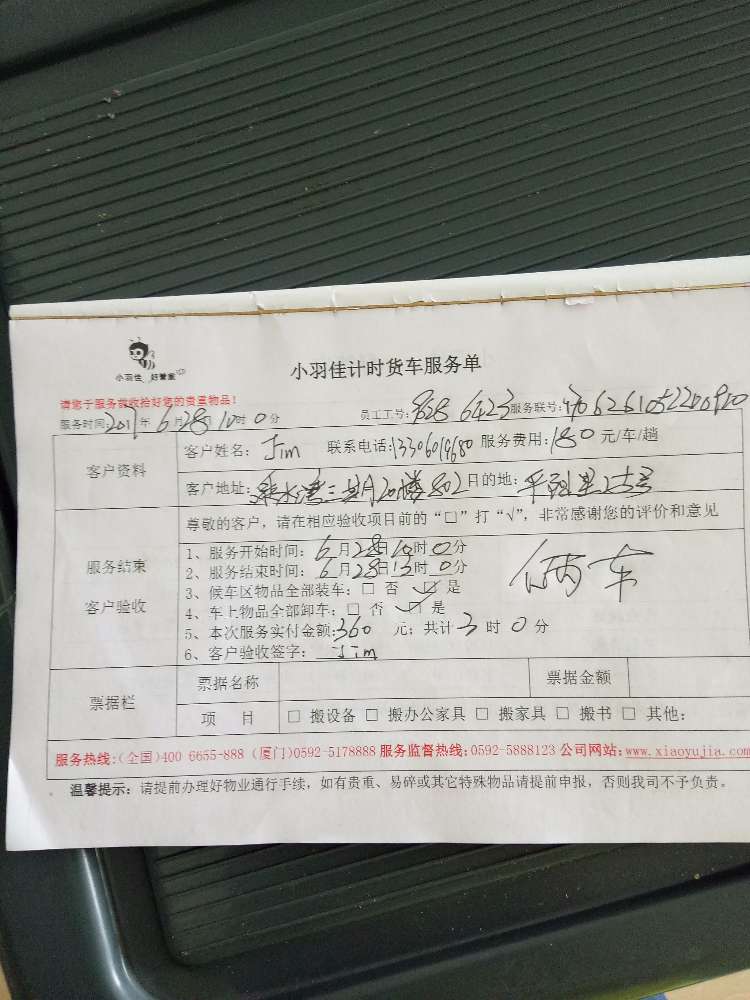 小羽佳 好管家VIP
小羽佳计时货车服务单
请您于服务前收拾好您的贵重物品！
服务时间:2017年6月28日10时0分 员工工号: 服务联号:
客户资料
客户姓名: Jim 联系电话: 服务费用:180元/车/趟
客户地址: 三期20楼802 目的地:
服务结束
客户验收
尊敬的客户，请在相应验收项目前的“□”打“√”，非常感谢您的评价和意见
1、服务开始时间: 6月28日10时0分
2、服务结束时间: 6月28日13时0分
3、候车区物品全部装车: □ 否 ☑ 是
4、车上物品全部卸车: □ 否 ☑ 是
5、本次服务实付金额:360元; 共计3时0分
6、客户验收签字: Jim
俩车
票据栏
票据名称 票据金额
项 目 □ 搬设备 □ 搬办公家具 □ 搬家具 □ 搬书 □ 其他:
服务热线:(全国)400 6655-888 (厦门)0592-5178888 服务监督热线:0592-5888123 公司网站:www.xiaoyujia.com
温馨提示: 请提前办理好物业通行手续，如有贵重、易碎或其它特殊物品请提前申报，否则我司不予负责。